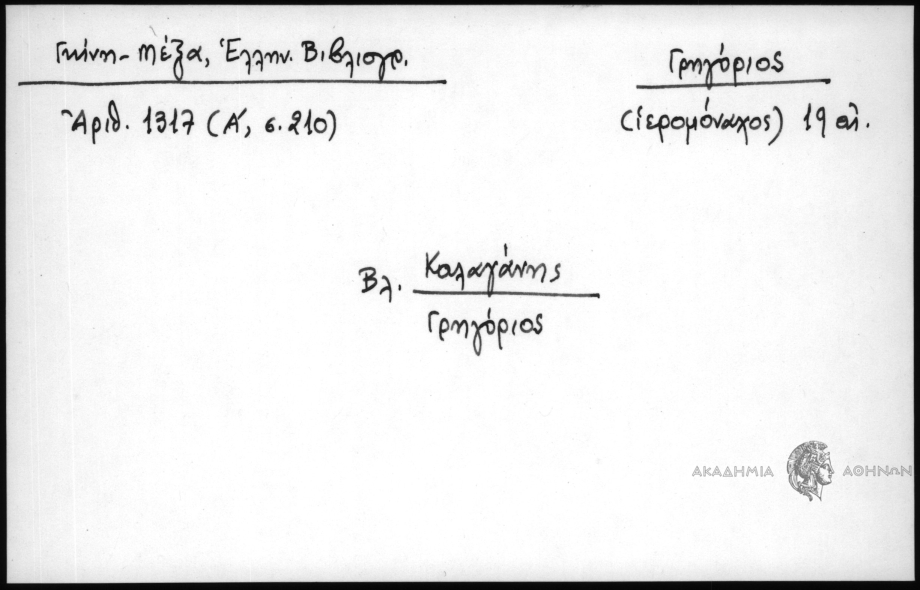 Γκίνη - Μέξα, Ἑλλην. Βιβλιογρ.
Ἀριθ. 1317 (Α΄, σ. 210)
Γρηγόριος
(ἱερομόναχος) 19 αἰ.
Βλ. Καλαγάνης
Γρηγόριος
ΑΚΑΔΗΜΙΑ ΑΘΗΝΩΝ